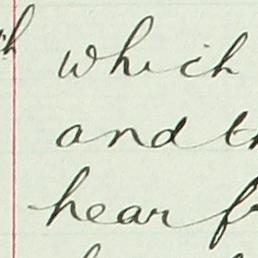 which
and
hear